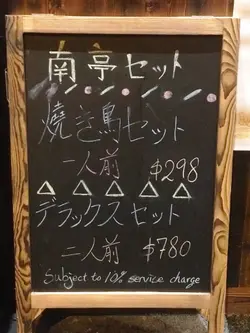 南亭セット
焼き鳥セット
一人前 $298
デラックスセット
二人前 $780
Subject to 10% service charge